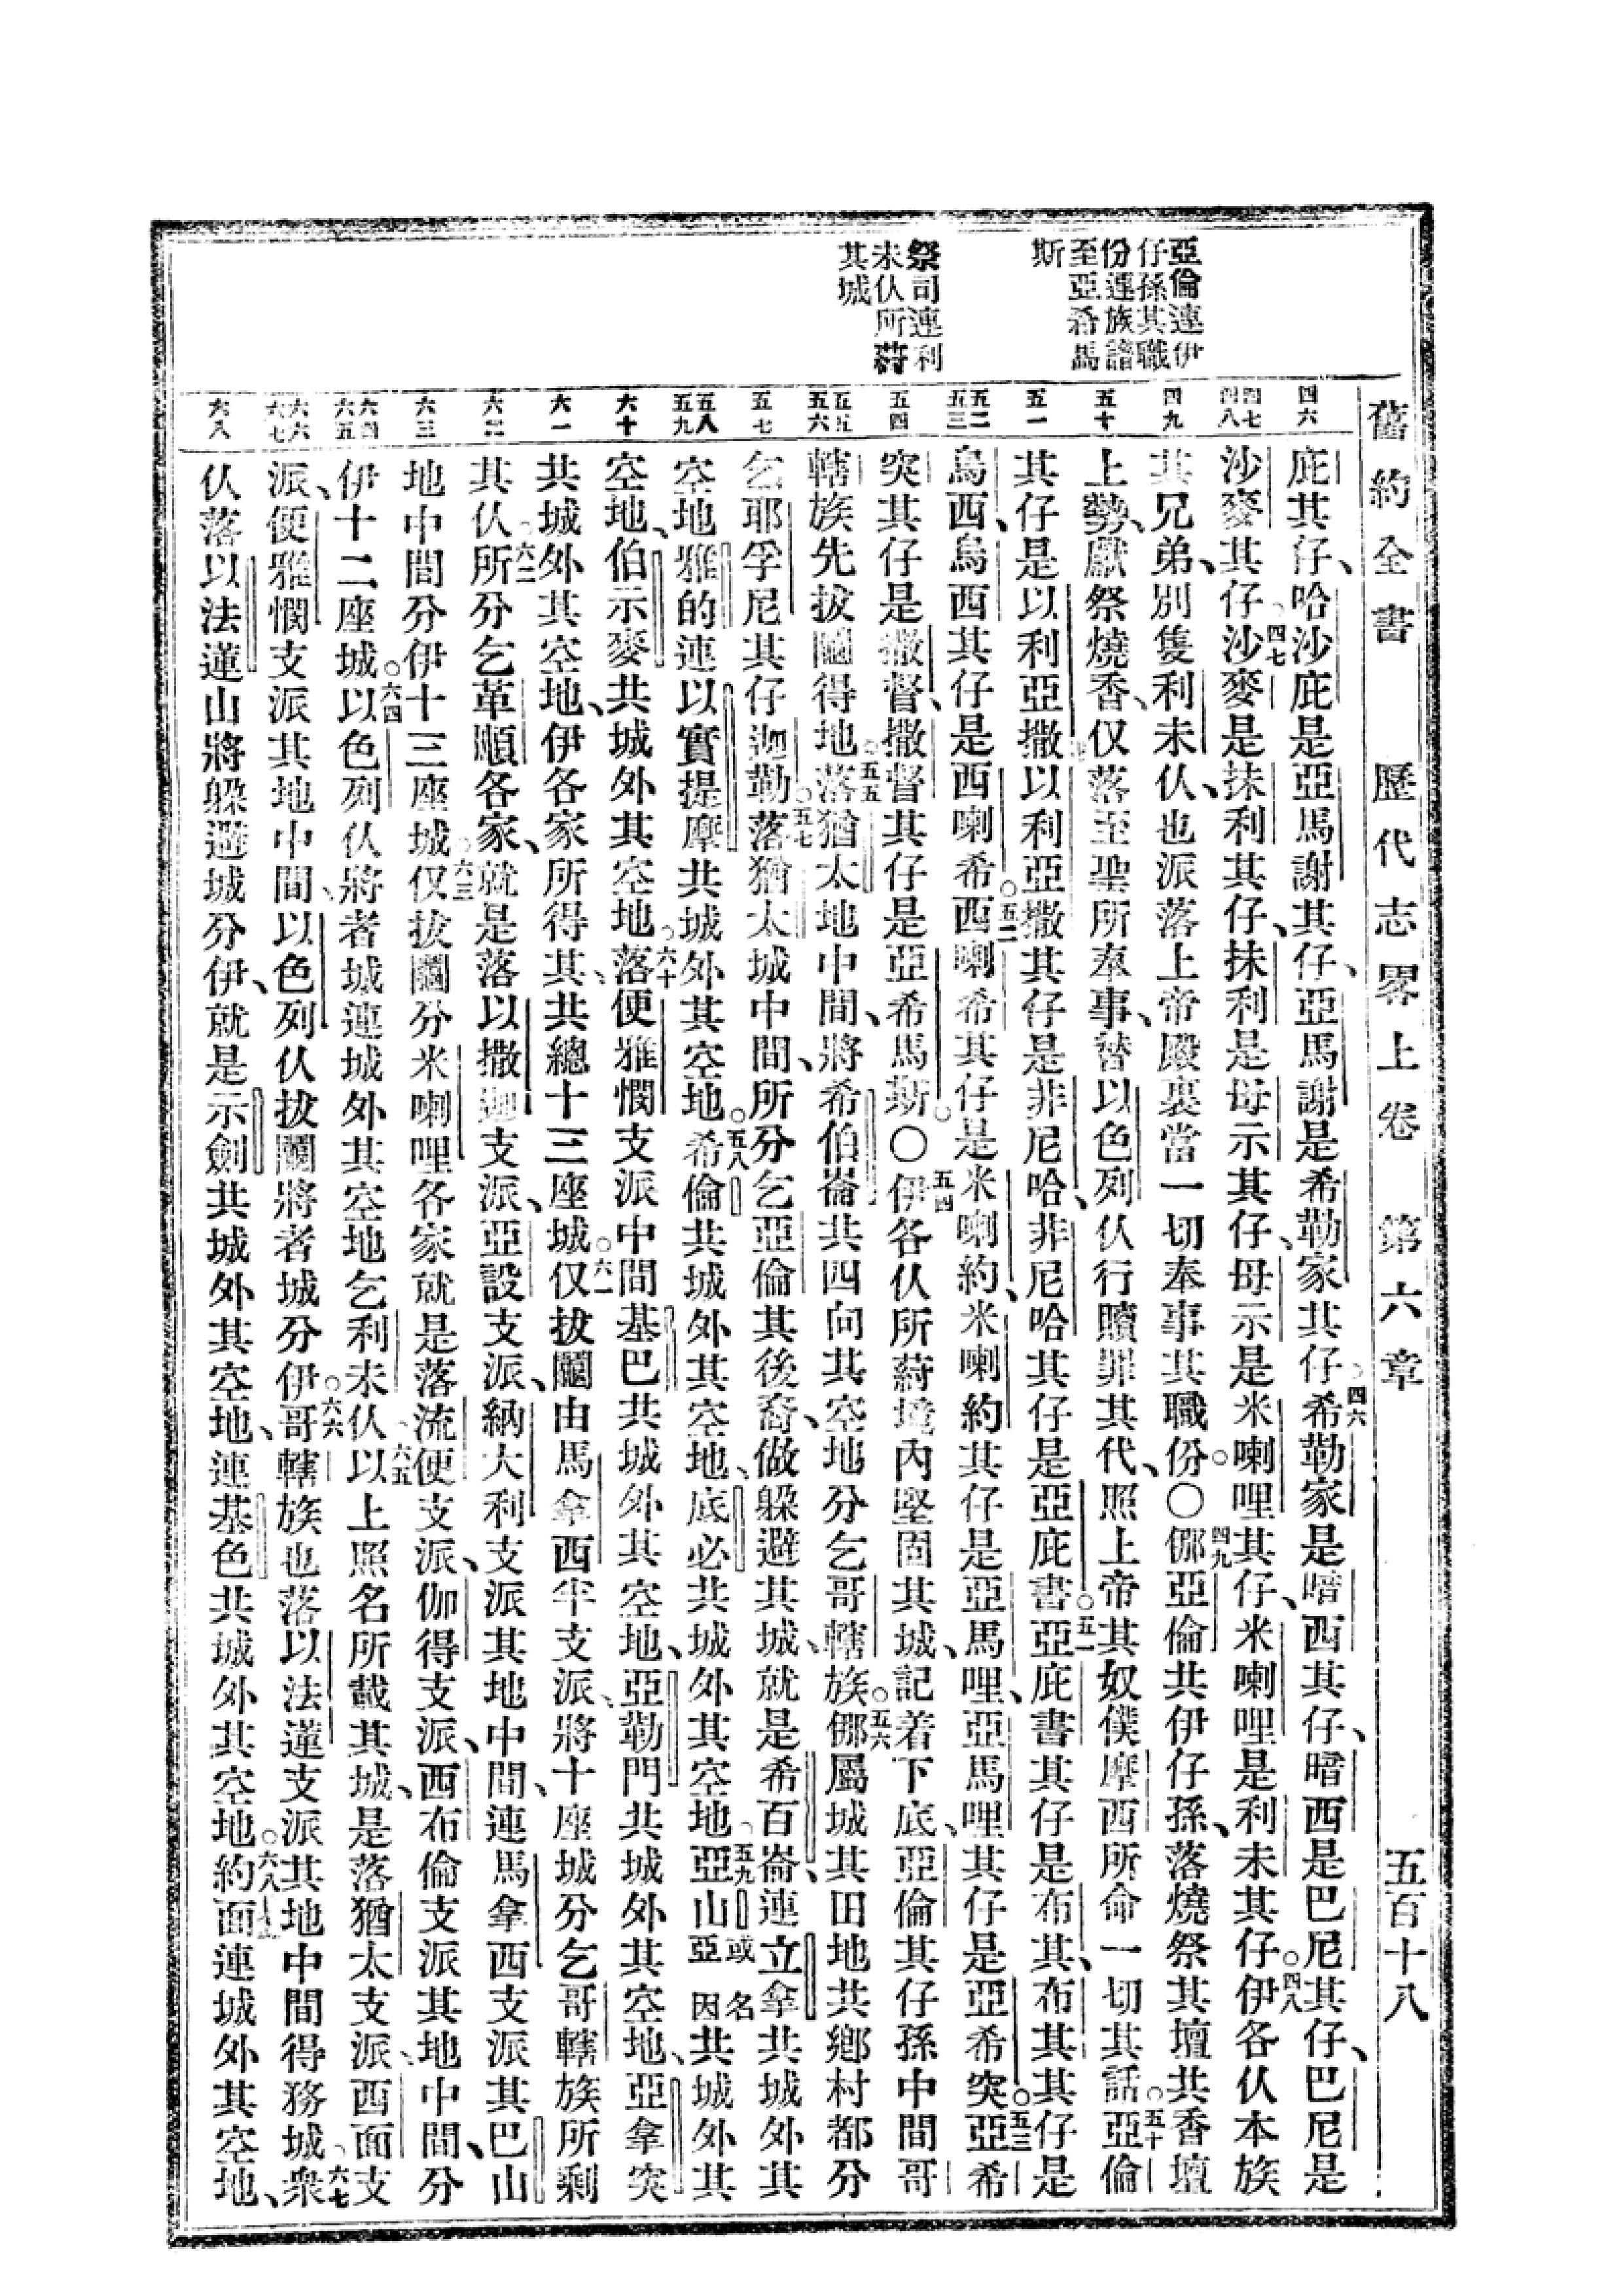 舊約全書 歷代志畧上卷 第六章 五百十八
亞倫連伊
仔孫其職
份連族譜
至亞希馬
斯
祭司連利
未仈所蒔
其城
四六
四七 四八
四九
五十
五一
五二 五三
五四
五五 五六
五七
五八 五九
六十
六一
六二
六三
六四 六五
六六 六七
六八
庇其仔、哈沙庇是亞馬謝其仔、亞馬謝是希勒家其仔○四六希勒家是暗西其仔、暗西是巴尼其仔、巴尼是
沙麥其仔○四七沙麥是抹利其仔、抹利是母示其仔、母示是米喇哩其仔、米喇哩是利未其仔○四八伊各仈本族
其兄弟、別隻利未仈、也派落上帝殿裏當一切奉事其職份○〇四九㑚亞倫共伊仔孫、落燒祭其壇共香壇
上勢、獻祭燒香、仅落至聖所奉事、替以色列仈行贖罪其代、照上帝其奴僕摩西所命一切其話○五十亞倫
其仔是以利亞撒以利亞撒其仔是非尼哈、非尼哈其仔是亞庇書○五一亞庇書其仔是布其、布其其仔是
烏西、烏西其仔是西喇希○五二西喇希其仔是米喇約、米喇約其仔是亞馬哩、亞馬哩其仔是亞希突○五三亞希
突其仔是撒督、撒督其仔是亞希馬斯○〇五四伊各仈所蒔境內堅固其城、記着下底、亞倫其仔孫中間哥
轄族先拔鬮得地○五五落猶太地中間、將希伯崙共四向其空地分乞哥轄族○五六㑚屬城其田地共鄉村都分
乞耶孚尼其仔迦勒○五七落猶太城中間、所分乞亞倫其後裔、做躲避其城、就是希百崙、連立拿共城外其
空地雅的連以實提摩共城外其空地○五八希倫共城外其空地、底必共城外其空地○五九亞山或名亞因共城外其
空地、伯示麥共城外其空地○六十落便雅憫支派中間基巴共城外其空地、亞勒門共城外其空地、亞拿突
共城外其空地、伊各家所得其、共總十三座城○六一仅拔鬮由馬拿西半支派、將十座城分乞哥轄族所剩
其仈○六二所分乞革順各家、就是落以撒迦支派、亞設支派、納大利支派其地中間、連馬拿西支派其巴山
地中間分伊十三座城○六三仅拔鬮分米喇哩各家就是落流便支派、伽得支派、西布倫支派其地中間、分
伊十二座城○六四以色列仈將者城連城外其空地乞利未仈○六五以上照名所載其城、是落猶太支派、西面支
派、便雅憫支派其地中間、以色列仈拔鬮將者城分伊○六六哥轄族也落以法蓮支派其地中間得務城○六七衆
仈落以法蓮山將躲避城分伊、就是示劍共城外其空地、連基色共城外其空地○六八約面連城外其空地、